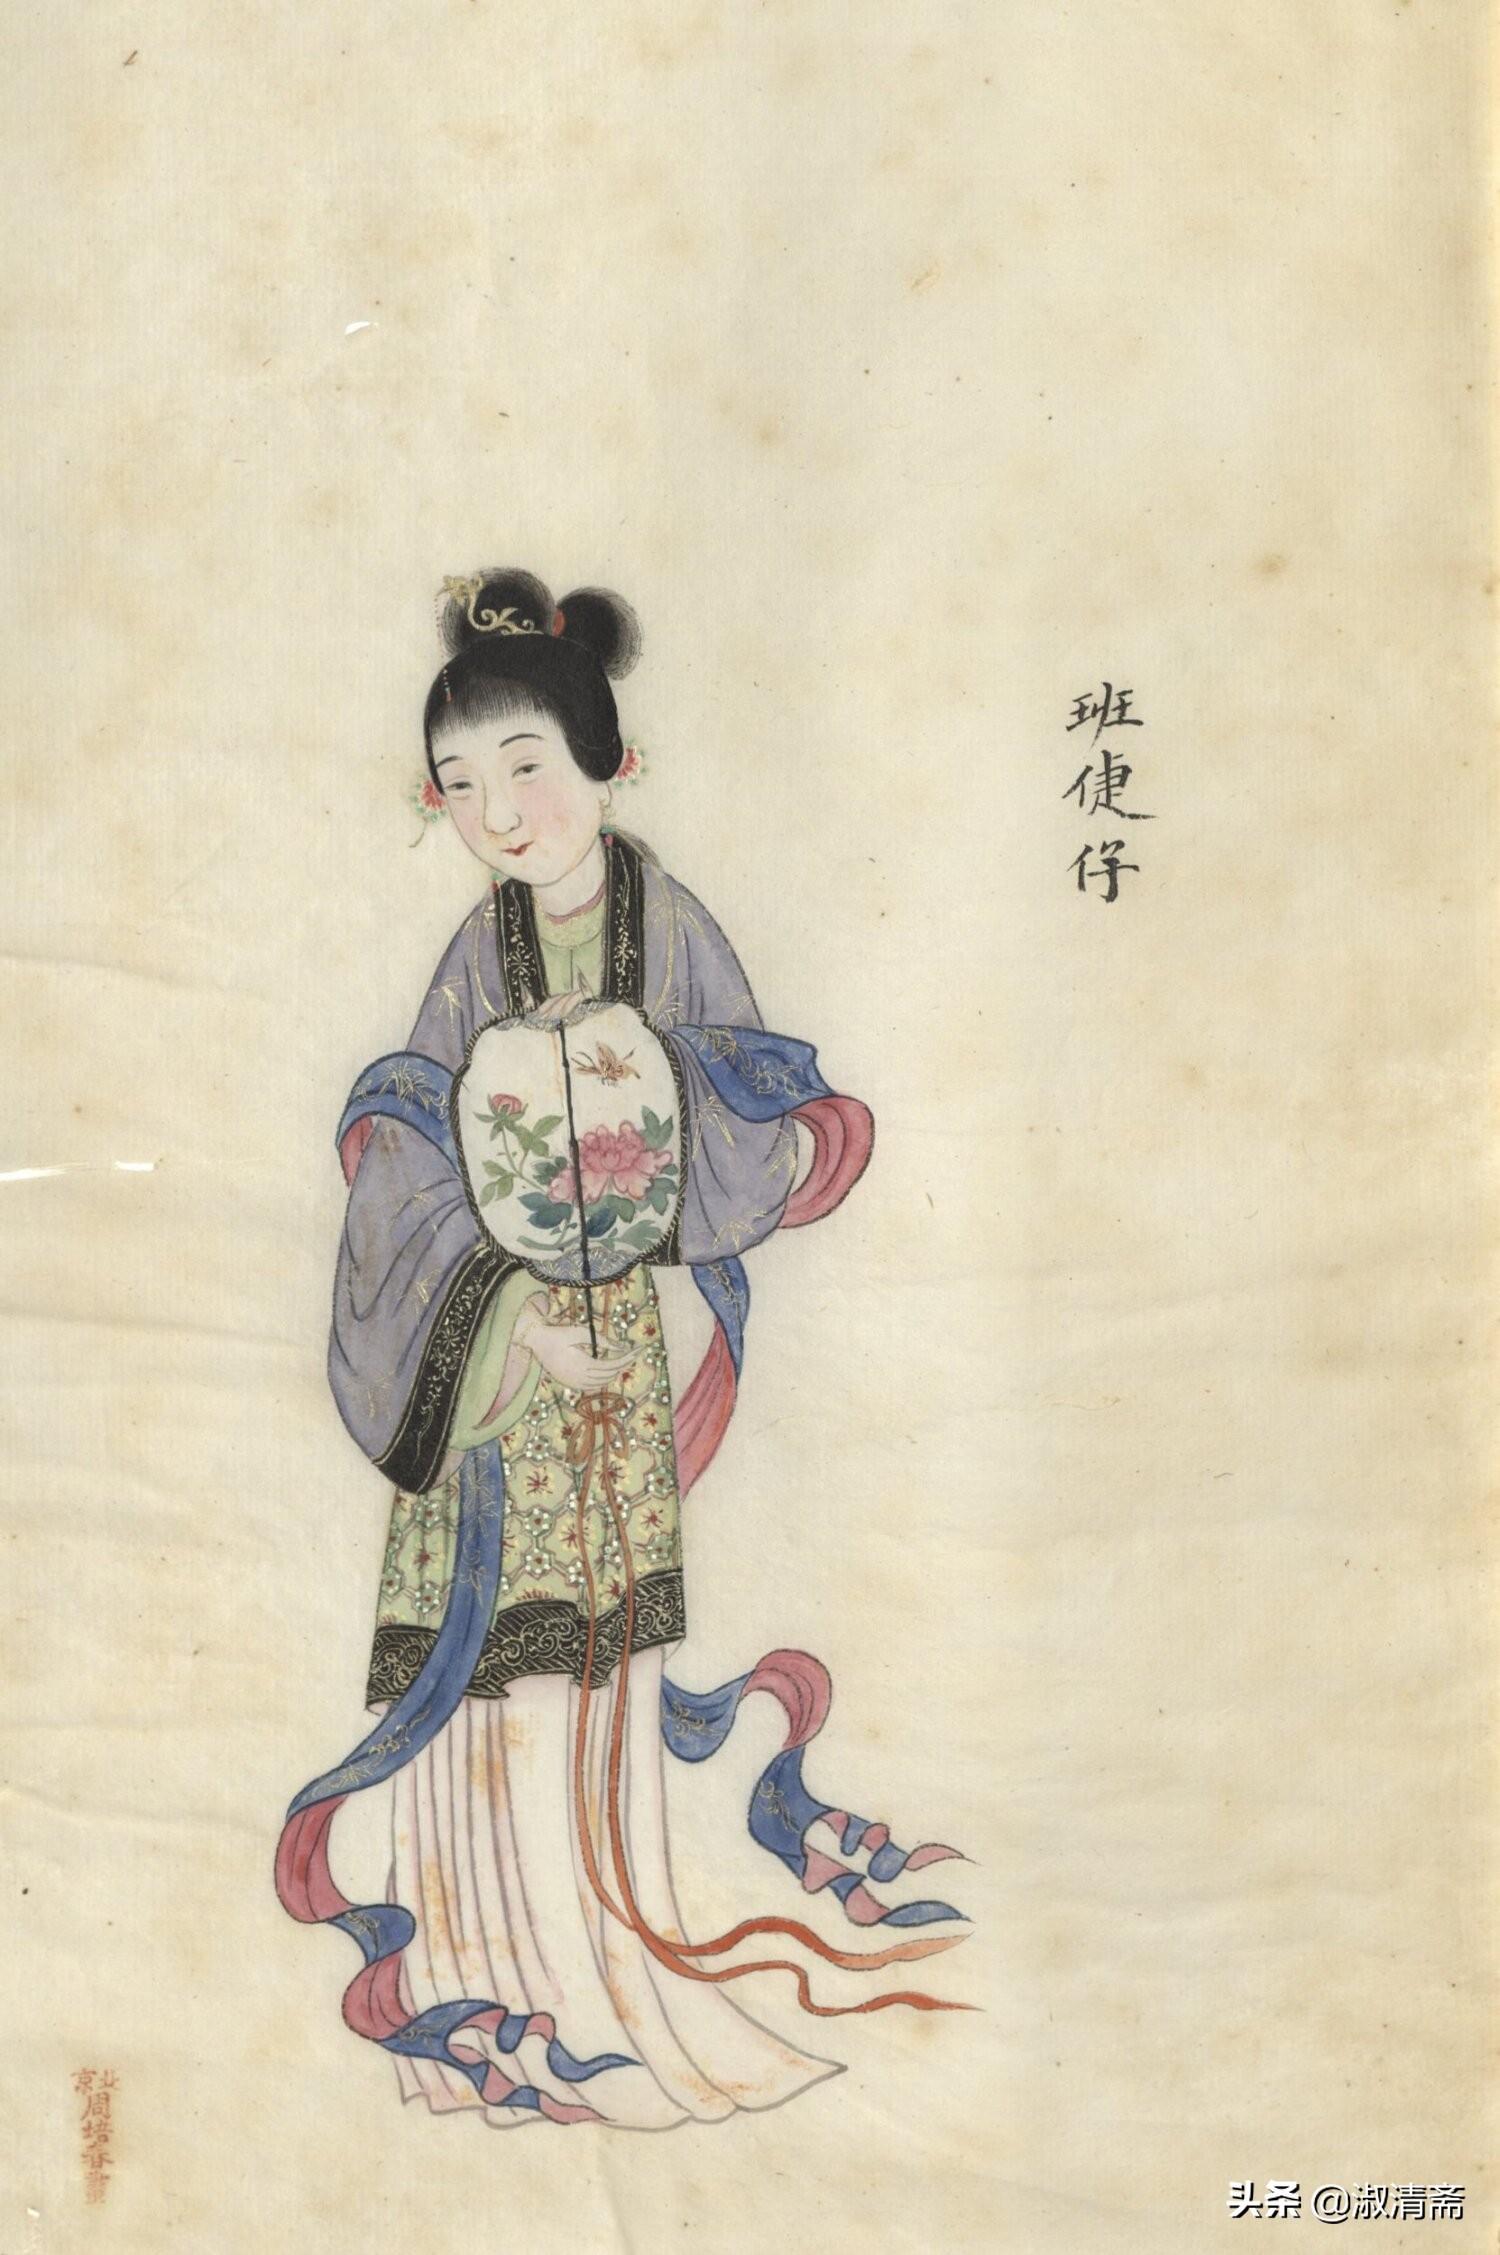 班倢伃
北京
周培春畫
头条 @淑清斋